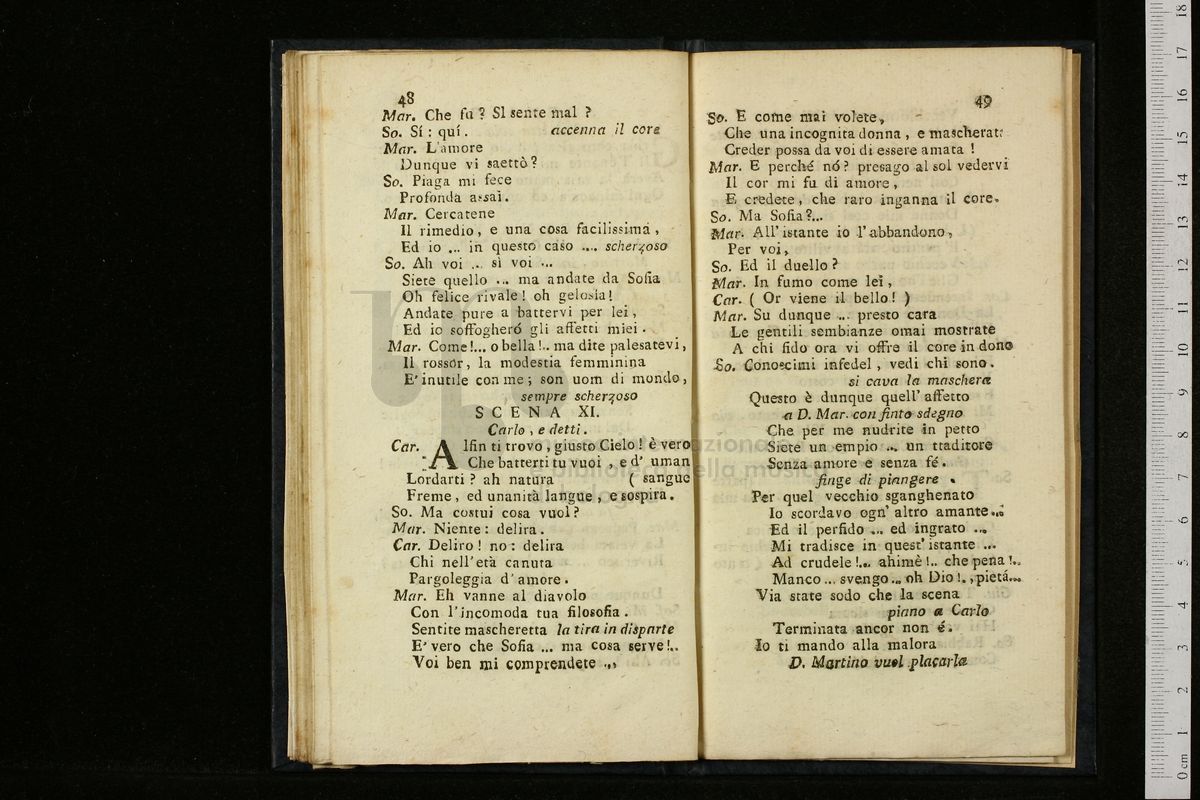 48
Mar. Che fu? Si sente mal?
So. Sí: quí. accenna il core
Mar. L'amore
Dunque vi saettò?
So. Piaga mi fece
Profonda assai.
Mar. Cercatene
Il rimedio, e una cosa facilissima,
Ed io ... in questo caso .... scherzoso
So. Ah voi ... si voi ...
Siete quello ... ma andate da Sofia
Oh felice rivale! oh gelosia!
Andate pure a battervi per lei,
Ed io soffogheró gli affetti miei.
Mar. Come!... o bella!.. ma dite palesatevi,
Il rossor, la modestia femminina
E' inutile con me; son uom di mondo,
sempre scherzoso
SCENA XI.
Carlo, e detti.
Car. Alfin ti trovo, giusto Cielo! è vero
Che batterti tu vuoi, e d' uman
Lordarti? ah natura ( sangue
Freme, ed unanità langue, e sospira.
So. Ma costui cosa vuol?
Mar. Niente: delira.
Car. Deliro! no: delira
Chi nell' età canuta
Pargoleggia d' amore.
Mar. Eh vanne al diavolo
Con l'incomoda tua filosofia.
Sentite mascheretta la tira in disparte
E' vero che Sofia ... ma cosa serve!..
Voi ben mi comprendete ...
49
So. E come mai volete,
Che una incognita donna, e mascherata
Creder possa da voi di essere amata!
Mar. E perché nó? presago al sol vedervi
Il cor mi fu di amore,
E credete, che raro inganna il core.
So. Ma Sofia?...
Mar. All' istante io l' abbandono,
Per voi,
So. Ed il duello?
Mar. In fumo come lei,
Car. ( Or viene il bello! )
Mar. Su dunque ... presto cara
Le gentili sembianze omai mostrate
A chi fido ora vi offre il core in dono
So. Conoscimi infedel, vedi chi sono.
si cava la maschera
Questo è dunque quell' affetto
a D. Mar. con finto sdegno
Che per me nudrite in petto
Siete un empio ... un traditore
Senza amore e senza fé.
finge di piangere.
Per quel vecchio sganghenato
Io scordavo ogn' altro amante...
Ed il perfido ... ed ingrato ...
Mi tradisce in quest' istante ...
Ad crudele!... ahimè!.. che pena!..
Manco ... svengo ... oh Dio!., pietá...
Via state sodo che la scena
piano a Carlo
Terminata ancor non é.
Io ti mando alla malora
D. Martino vuol placarla